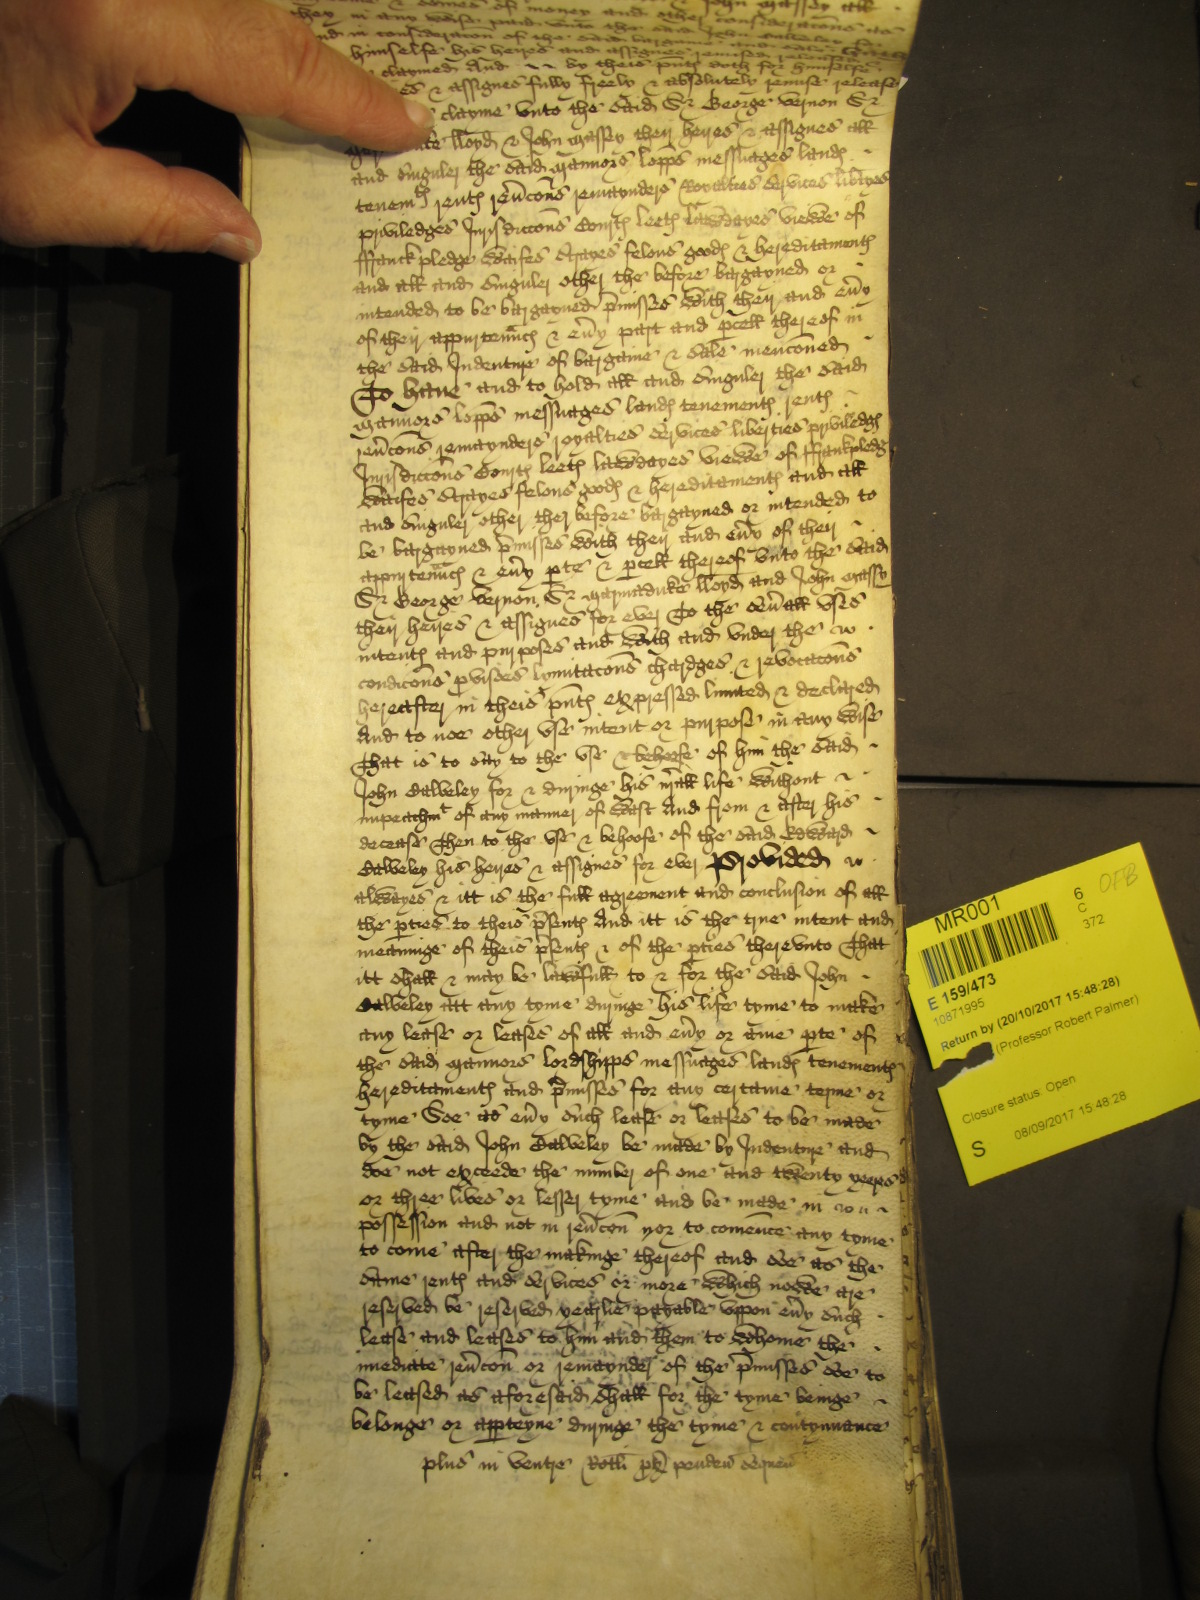 somes of money and other consideracons as
they in any wise paid unto the said John Calveley
And in consideracon of the said bargaine and sale
himselfe his heyres and assignes remised released
claymed And by theis pñts doth for himselfe
& assignes fully freely & absolutely remise release
clayme unto the said Sr George Vernon Sr
lloyd & John Massey their heyres & assignes all
and singuler the said Mannors lopps messuages lands
tenemts rents revc̃ons remaynders Royalties services libtyes
priviledges Jurisdicc̃ons Courts leets lawdayes viewe of
ffranckpledge Waifes Strayes felons goods & hereditaments
and all and singuler other the before bargayned or
intended to be bargayned p̃misses With their and ev̾y
of their appurtenñcs & ev̾y part and p̱cell thereof in
the said Indenture of bargaine & sale menc̃oned
To have and to hold all and singuler the said
Mannors lopps messuages lands tenements rents
rev̾c̃ons remaynders royalties services liberties priviledgs
Jurisdicc̃ons Courts leets lawdayes viewe of ffrankpledge
Waifes Strayes felons goods & hereditaments and all
and singuler other ther before bargayned or intended to
be bargayned p̃misses With their and ev̾y of their
appurtenñcs & ev̾y p̱te & p̱cell thereof unto the said
Sr George Vernon Sr Marmaduke lloyd and John Massy
their heyres & assignes for ever To the sev̾all uses
intents and purposes and With and under the
condic̃ons p̱visoes lymitac̃ons chardges & revocac̃ons
hereafter in theis p̃nts expressed limited & declared
And to noe other use intent or purpose in any Wise
That is to say to the use & behoofe of him the said
John Calveley for & duringe his nr̃all life Without
impeachmt of any manner of Wast And from & after his
decease Then to the use & behoofe of the said Edward
Calveley his heyres & assignes for ever Provided
alwayes & itt is the full agreement and conclusion of all
the p̱ties to theis p̃sents And itt is the true intent and
meaninge of theis p̃sents & of the p̱ties thereunto That
itt shall & may be lawfull to & for the said John
Calveley att any tyme duringe his life tyme to make
any lease or leases of all and ev̾y or anie p̱te of
the said Mannors lordshipps messuages lands tenements
hereditaments and p̃misses for any certaine terme or
tyme Soe as ev̾y such lease or leases to be made
by the said John Calveley be made by Indenture and
doe not exceede the number of one and twenty yeeres
or three lives or lesser tyme and be made in
possession and not in rev̾c̃on nor to com̃ence any tyme
to come after the makinge thereof and soe as the
same rents and services or more Which nowe are
reserved be reserved yearlie payable uppon ev̾y such
lease and leases to him and them to Whome the
im̃ediate rev̾c̃on or remaynder of the p̃misses soe to
be leased as aforesaid shall for the tyme beinge
belonge or app̱teyne duringe the tyme & contynuance
plus in ventre Rotli
MR001
6
C
372
OFB
E 159/473
10871995
Return by (20/10/2017 15:48:28)
(Professor Robert Palmer)
Closure status: Open
S 08/09/2017 15:48:28